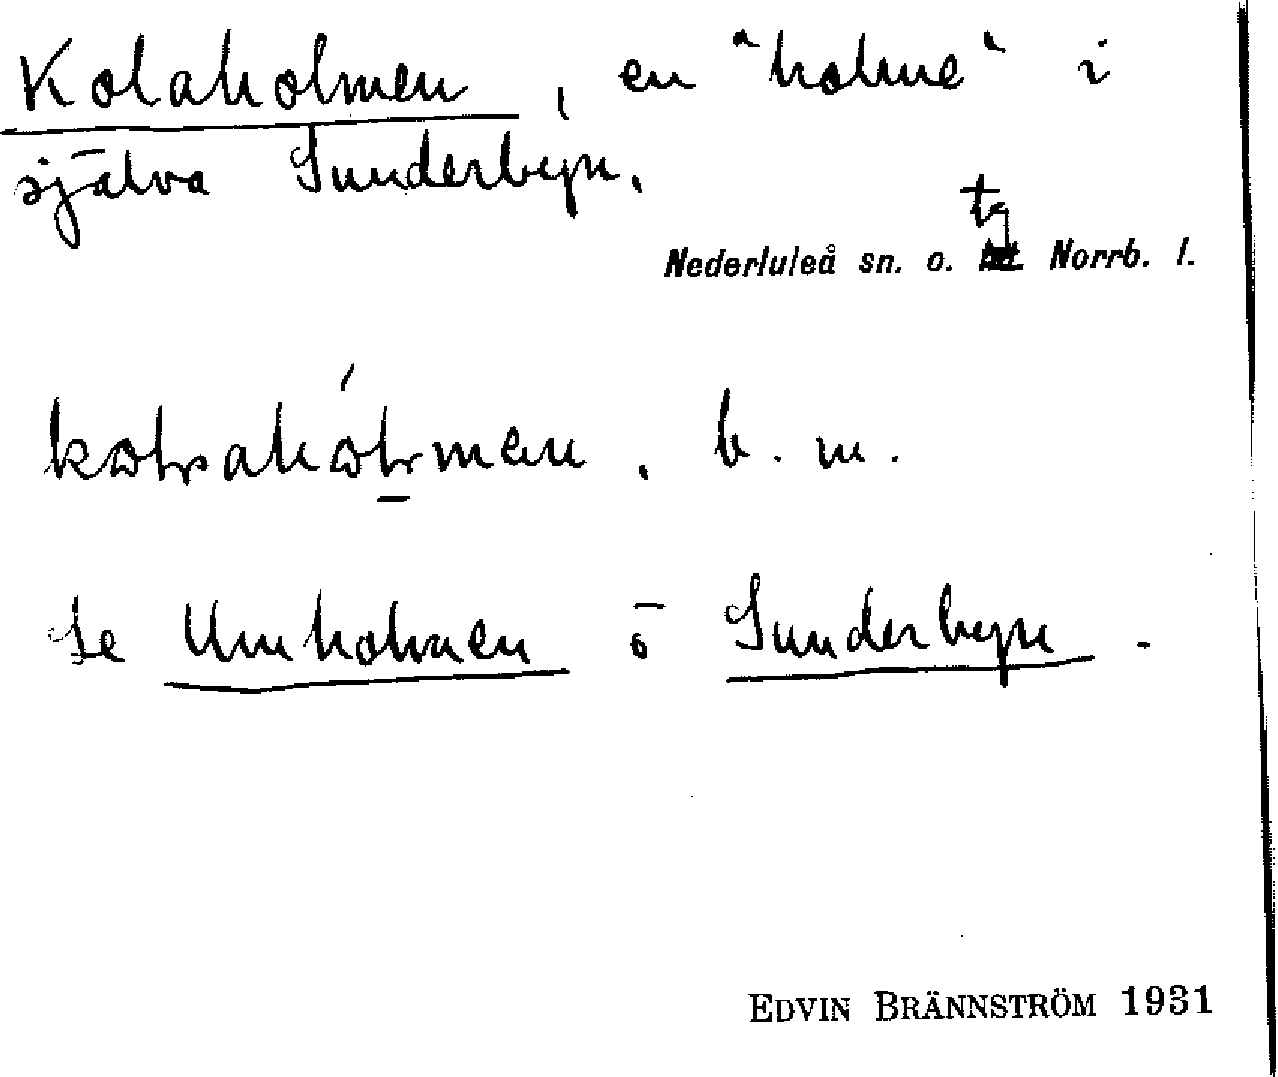 Kolaholmen, en "holme" i
själva Sunderbyn.
tg
Nederluleå sn. o. Norrb. l.
b. m.
Se Umholmen o Sunderbyn.
EDVIN BRÄNNSTRÖM 1931